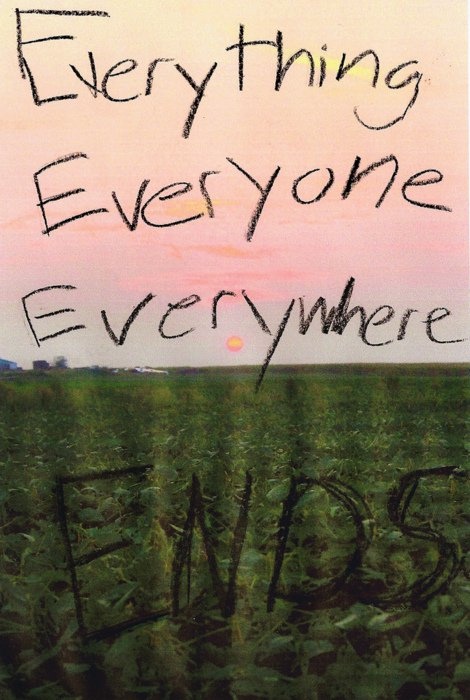 Everything
Everyone
Everywhere
ENDS